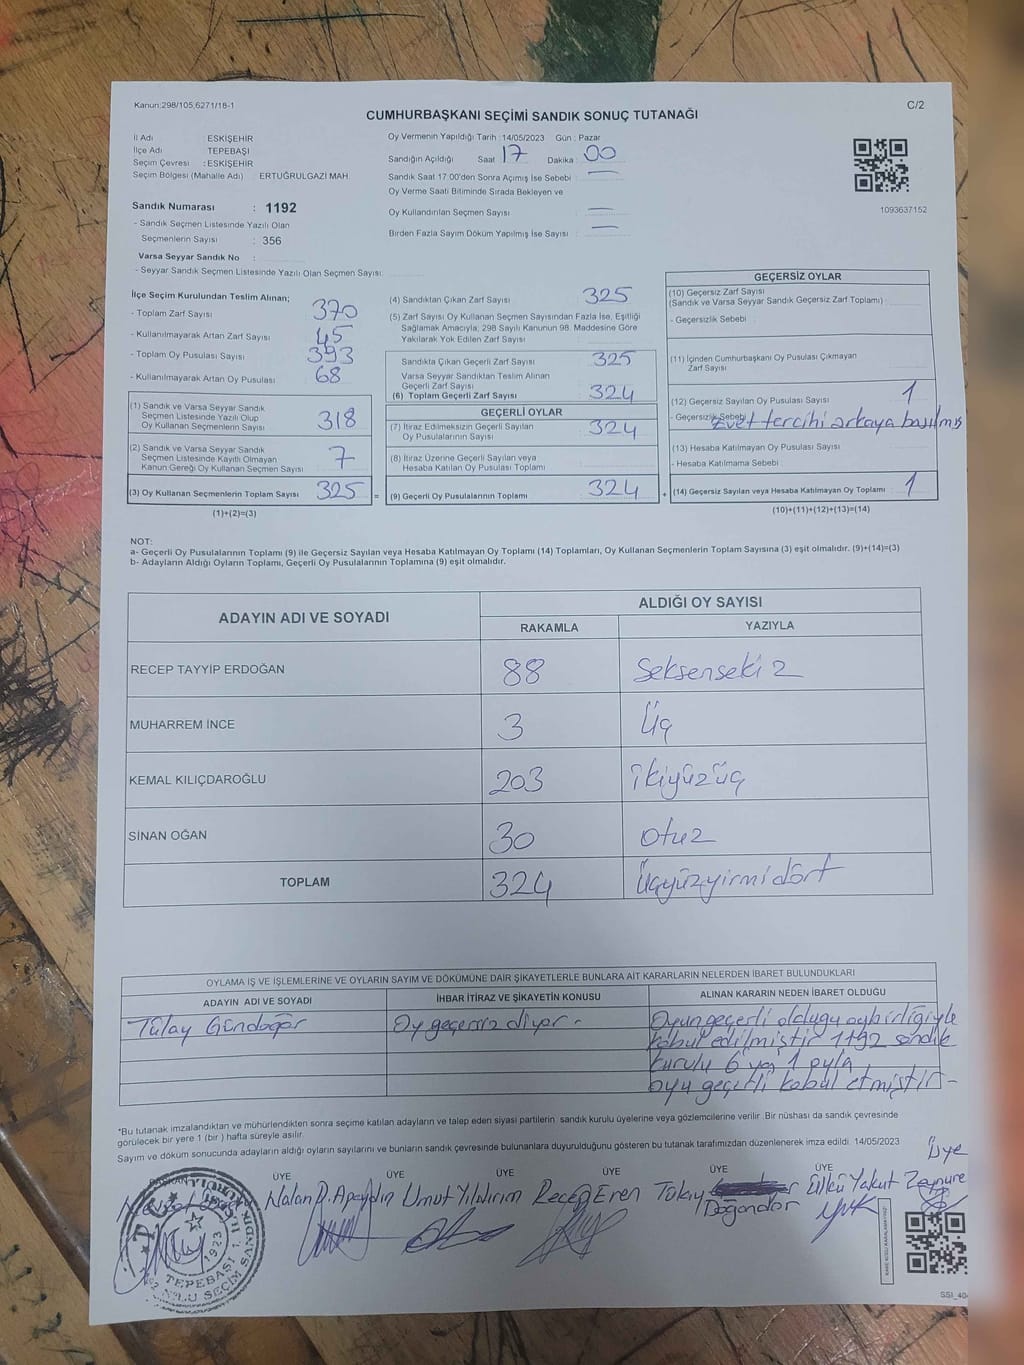 Kanun:298/105,6271/18-1
C/2
CUMHURBAŞKANI SEÇİMİ SANDIK SONUÇ TUTANAĞI
İl Adı : ESKİŞEHİR
İlçe Adı : TEPEBAŞI
Seçim Çevresi : ESKİŞEHİR
Seçim Bölgesi (Mahalle Adı) : ERTUĞRULGAZİ MAH.
Sandık Numarası : 1192
- Sandık Seçmen Listesinde Yazılı Olan
Seçmenlerin Sayısı : 356
Varsa Seyyar Sandık No :
- Seyyar Sandık Seçmen Listesinde Yazılı Olan Seçmen Sayısı:
Oy Vermenin Yapıldığı Tarih : 14/05/2023 Gün : Pazar
Sandığın Açıldığı Saat 17 Dakika : 00
Sandık Saat 17:00'den Sonra Açımış İse Sebebi : —
Oy Verme Saati Bitiminde Sırada Bekleyen ve
Oy Kullandırılan Seçmen Sayısı : —
Birden Fazla Sayım Döküm Yapılmış İse Sayısı : —
1093637152
İlçe Seçim Kurulundan Teslim Alınan;
- Toplam Zarf Sayısı : 370
- Kullanılmayarak Artan Zarf Sayısı : 45
- Toplam Oy Pusulası Sayısı : 393
- Kullanılmayarak Artan Oy Pusulası : 68
(1) Sandık ve Varsa Seyyar Sandık
Seçmen Listesinde Yazılı Olup
Oy Kullanan Seçmenlerin Sayısı 318
(2) Sandık ve Varsa Seyyar Sandık
Seçmen Listesinde Kayıtlı Olmayan
Kanun Gereği Oy Kullanan Seçmen Sayısı 7
(3) Oy Kullanan Seçmenlerin Toplam Sayısı 325 =
(1)+(2)=(3)
(4) Sandıktan Çıkan Zarf Sayısı : 325
(5) Zarf Sayısı Oy Kullanan Seçmen Sayısından Fazla İse, Eşitliği
Sağlamak Amacıyla; 298 Sayılı Kanunun 98. Maddesine Göre
Yakılarak Yok Edilen Zarf Sayısı :
Sandıkta Çıkan Geçerli Zarf Sayısı 325
Varsa Seyyar Sandıktan Teslim Alınan
Geçerli Zarf Sayısı
(6) Toplam Geçerli Zarf Sayısı 324
GEÇERLİ OYLAR
(7) İtiraz Edilmeksizin Geçerli Sayılan
Oy Pusulalarının Sayısı 324
(8) İtiraz Üzerine Geçerli Sayılan veya
Hesaba Katılan Oy Pusulası Toplamı
(9) Geçerli Oy Pusulalarının Toplamı 324 +
GEÇERSİZ OYLAR
(10) Geçersiz Zarf Sayısı
(Sandık ve Varsa Seyyar Sandık Geçersiz Zarf Toplamı) :
- Geçersizlik Sebebi :
(11) İçinden Cumhurbaşkanı Oy Pusulası Çıkmayan
Zarf Sayısı :
(12) Geçersiz Sayılan Oy Pusulası Sayısı : 1
- Geçersizlik Sebebi : Evet tercihi arkaya basılmış
(13) Hesaba Katılmayan Oy Pusulası Sayısı :
- Hesaba Katılmama Sebebi :
(14) Geçersiz Sayılan veya Hesaba Katılmayan Oy Toplamı : 1
(10)+(11)+(12)+(13)=(14)
NOT:
a- Geçerli Oy Pusulalarının Toplamı (9) ile Geçersiz Sayılan veya Hesaba Katılmayan Oy Toplamı (14) Toplamları, Oy Kullanan Seçmenlerin Toplam Sayısına (3) eşit olmalıdır. (9)+(14)=(3)
b- Adayların Aldığı Oyların Toplamı, Geçerli Oy Pusulalarının Toplamına (9) eşit olmalıdır.
ADAYIN ADI VE SOYADI
ALDIĞI OY SAYISI
RAKAMLA YAZIYLA
RECEP TAYYİP ERDOĞAN 88 Seksensekiz
MUHARREM İNCE 3 Üç
KEMAL KILIÇDAROĞLU 203 İkiyüzüç
SİNAN OĞAN 30 otuz
TOPLAM 324 Üçyüzyirmidört
OYLAMA İŞ VE İŞLEMLERİNE VE OYLARIN SAYIM VE DÖKÜMÜNE DAİR ŞİKAYETLERLE BUNLARA AİT KARARLARIN NELERDEN İBARET BULUNDUKLARI
ADAYIN ADI VE SOYADI İHBAR İTİRAZ VE ŞİKAYETİN KONUSU ALINAN KARARIN NEDEN İBARET OLDUĞU
Tülay Gündoğar Oy geçersiz diyor - Oyun geçerli olduğu oybirliğiyle
kabul edilmiştir 1192 sandık
kurulu 6 ya 1 oyla
oyu geçerli kabul etmiştir -
*Bu tutanak imzalandıktan ve mühürlendikten sonra seçime katılan adayların ve talep eden siyasi partilerin sandık kurulu üyelerine veya gözlemcilerine verilir. Bir nüshası da sandık çevresinde
görülecek bir yere 1 (bir ) hafta süreyle asılır.
Sayım ve döküm sonucunda adayların aldığı oyların sayılarını ve bunların sandık çevresinde bulunanlara duyurulduğunu gösteren bu tutanak tarafımızdan düzenlenerek imza edildi. 14/05/2023
BAŞKAN ÜYE ÜYE ÜYE ÜYE ÜYE ÜYE Üye
Nalan D. Apaydın Umut Yıldırım Recep Eren Tülay Doğandor Ülkü Yakut Zeynure
1923
TEPEBAŞI
SSİ_40